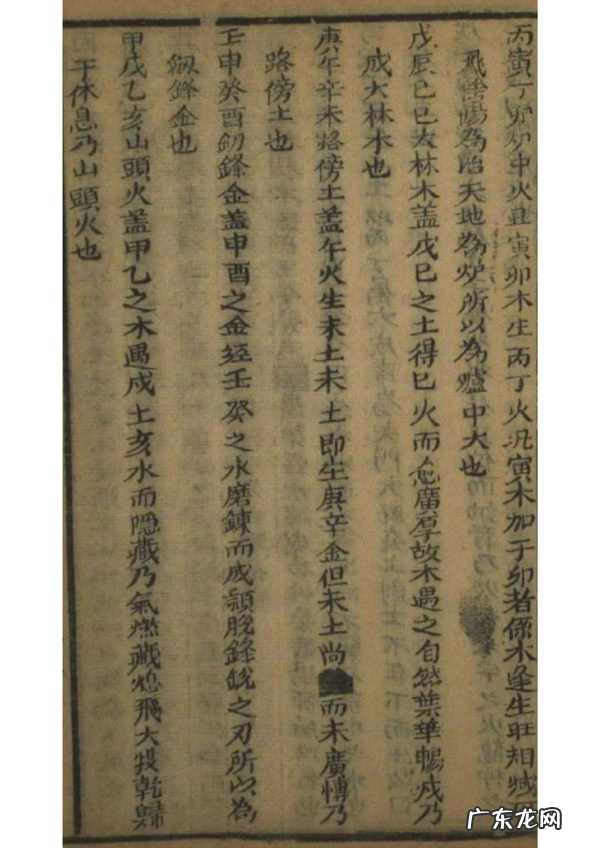 丙寅丁卯炉中火且寅卯木生丙丁火况寅木加于卯者係木逢生旺相
飛陰陽為冶天地為炉所以為爐中大也
戊辰己巳大林木盖戊巳之土得巳火而愈廣厚故木遇之自然葉華暢茂乃
成大林木也
庚午辛未路傍土盖午火生未土未土即生庚辛金但未土尚而未廣慱乃
路傍土也
壬申癸酉釰鋒金盖申酉之金经壬癸之水磨鍊而成頴脫鋒銳之刃所以為
釼鋒金也
甲戌乙亥山頭火盖甲乙之木遇戌土亥水而隐藏乃氣燃藏熄飛大乾歸
于休息乃山頭火也
广东龙网